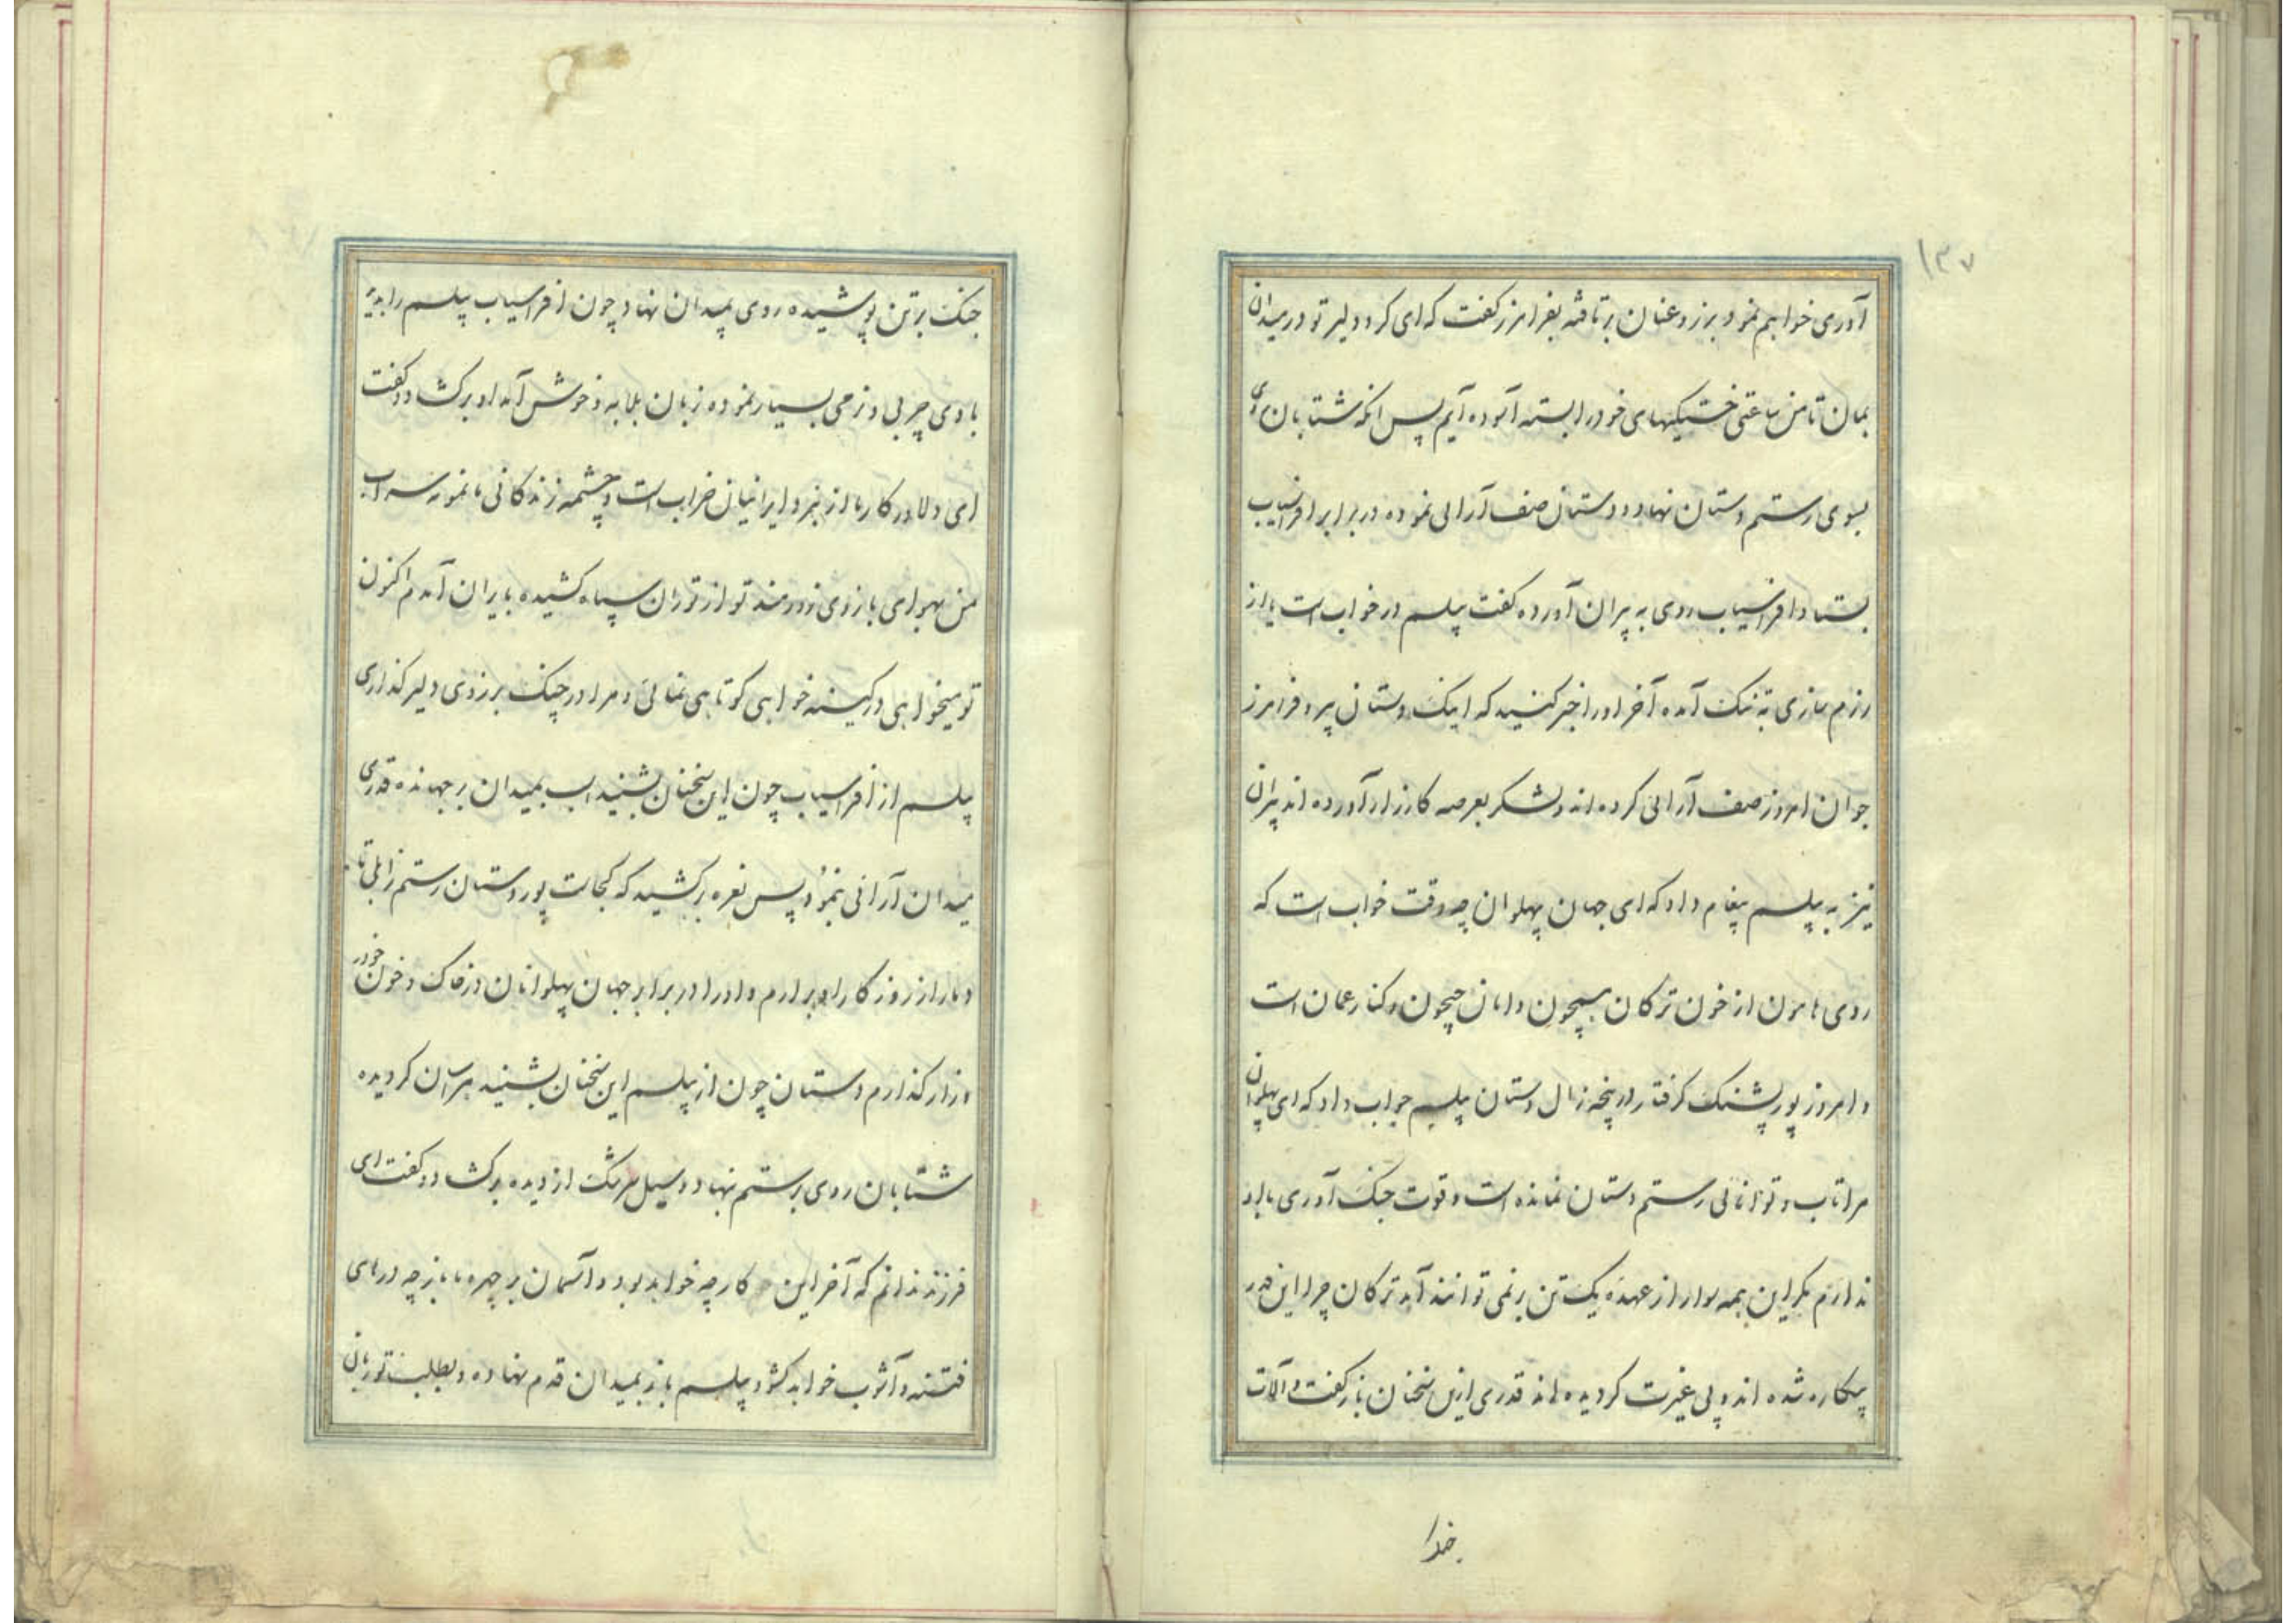 ۱۳۷
آوری خواهم نمود برزو عنان برتافته بفرامرز گفت که ای کرد دلیر تو در میدان
بمان تا من ساعتی خستگیهای خود را بسته آسوده آیم پس انکه شتابان روی
بسوی رستم دستان نهاد و دستان صف آرائی نموده در برابر افراسیاب
بستاد و افراسیاب روی به پیران آورده گفت پیلسم در خواب است یا از
رزم سازی به تنک آمده آخر او را خبر کنید که اینک دستان پیر و فرامرز
جوان امروز صف آرائی کرده اند و لشکر بعرصه کارزار آورده اند پیران
نیز به پیلسم پیغام داد که ای جهان پهلوان چه وقت خواب است که
روی هامون از خون ترکان همچون دامان جیحون و کنار عمان است
و امروز پور پشنک گرفتار در پنجه زال دستان پیلسم جواب داد که ای پهلوان
مرا تاب و توانائی رستم دستان نمانده است و قوت جنک آوری با او
ندارم مگر این همه سوار از عهده یک تن بر نمی توانند آمد ترکان چرا این قدر
بیکاره شده اند و بی غیرت گردیده اند قدری ازین سخنان باز گفت و آلات
جنک بر تن پوشیده روی بمیدان نهاد چون افراسیاب پیلسم را بدید
با وی چربی و نرمی بسیار نموده زبان بلابه و خوش آمد او برگشاد و گفت
ای دلاور کار ما از نبرد ایرانیان خراب است و چشمه زندگانی ما نمونه سراب
من بهوای بازوی زورمند تو از توران سپاه کشیده بایران آمدم اکنون
تو میخواهی در کینه خواهی کوتاهی نمائی و مرا در چنک برزوی دلیر گذاری
پیلسم از افراسیاب چون این سخنان بشنید اسب بمیدان بر جهانده قدری
میدان آرائی بنمود پس نعره برکشید که کجاست پور دستان رستم زابلی تا
دمار از روزگار او برارم و او را در برابر جهان پهلوانان در خاک و خون خوار
و زار گذارم دستان چون از پیلسم این سخنان بشنید هراسان گردیده
شتابان روی برستم نهاد و سیل سرشک از دیده برگشاد و گفت ای
فرزند ندانم که آخر این کار چه خواهد بود و آسمان بر چهره ما باز چه درهای
فتنه و آشوب خواهد گشود پیلسم باز بمیدان قدم نهاده و بطلب تو زبان
خدا